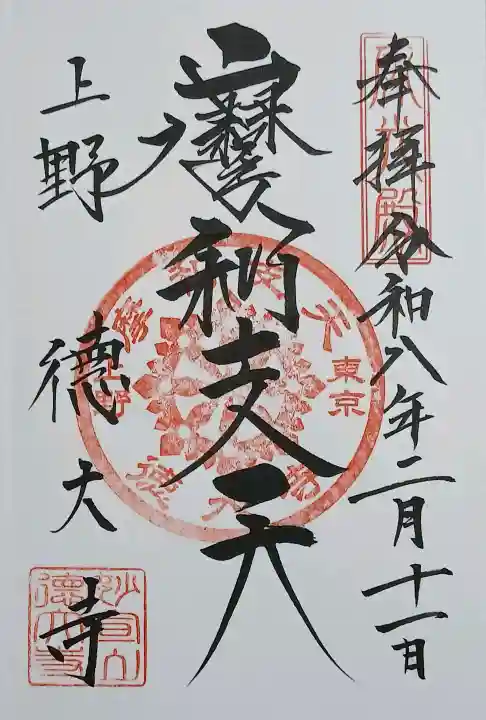 奉拝
令和八年二月十一日
摩利支天
上野
徳大寺
東京
上野
徳大寺